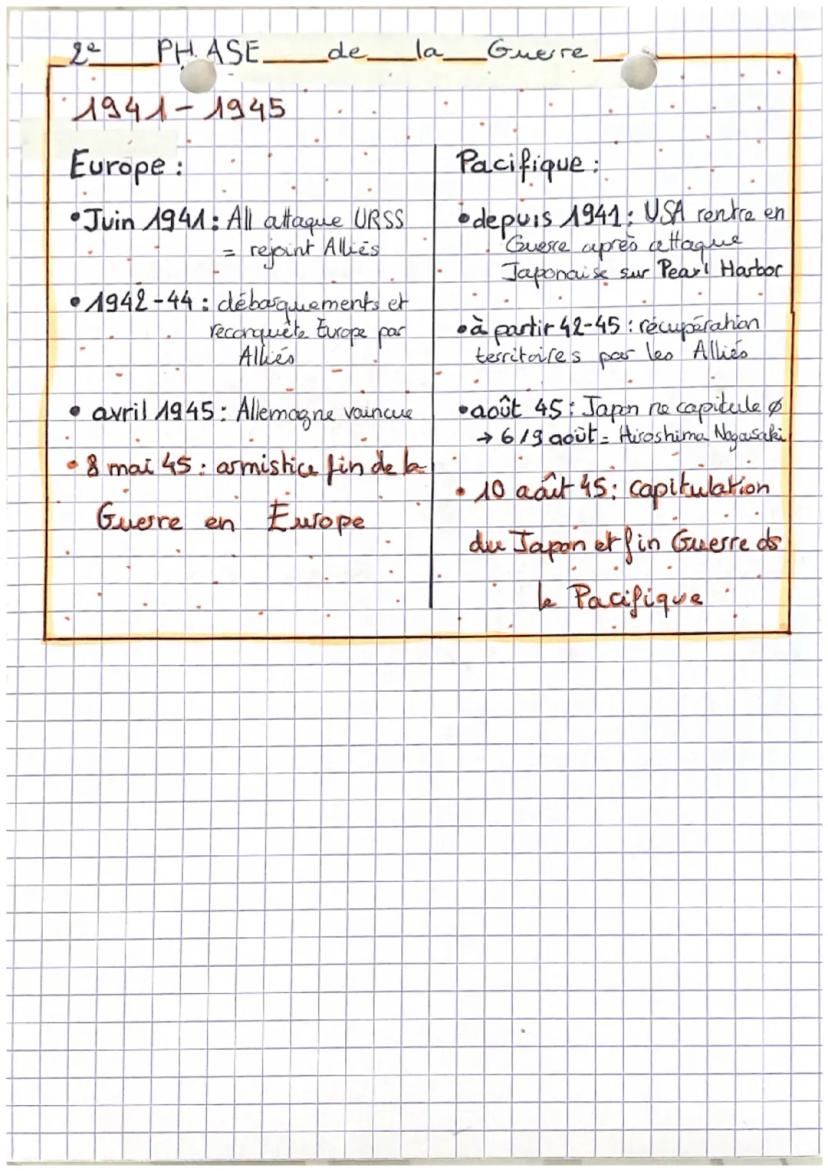 2e PHASE de la Guerre
1941-1945
Europe :
• Juin 1941 : All attaque URSS
= rejoint Alliés
• 1942-44 : débarquements et
reconquête Europe par
Alliés
• avril 1945 : Allemagne vaincue
• 8 mai 45 : armistice fin de la
Guerre en Europe
Pacifique :
• depuis 1941 : USA rentre en
Guerre après attaque
Japonaise sur Pearl Harbor
• à partir 42-45 : récupération
territoires par les Alliés
• août 45 : Japon ne capitule ø
→ 6/9 août = Hiroshima Nagasaki
• 10 août 45 : capitulation
du Japon et fin Guerre ds
le Pacifique